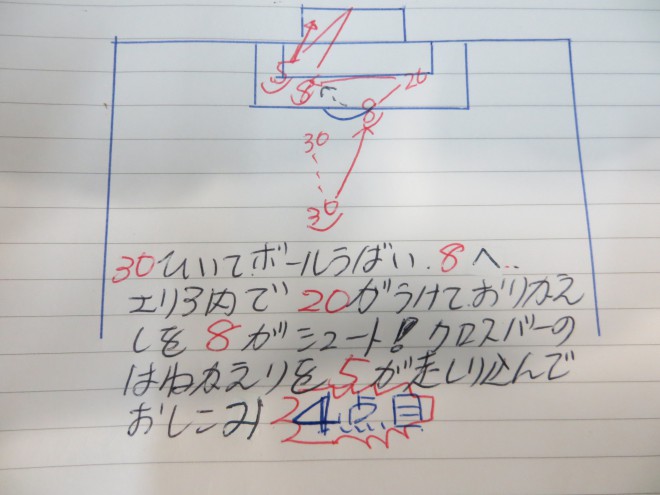 5
8
20
8
30
30
30ひいてボールうばい.8へ..
エリア内で20がうけておりかえ
しを8がシュート!クロスバーの
はねかえりを5が走り込んで
おしこみ4点目